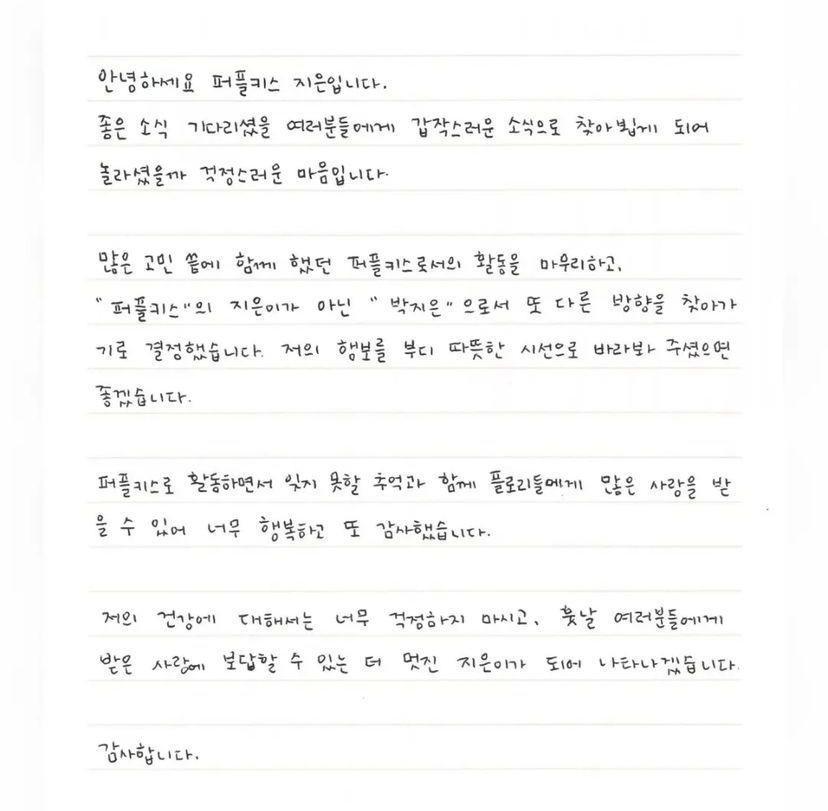 안녕하세요 퍼플키스 지은입니다.
좋은 소식 기다리셨을 여러분들에게 갑작스러운 소식으로 찾아뵙게 되어
놀라셨을까 걱정스러운 마음입니다.
많은 고민 끝에 함께 했던 퍼플키스로서의 활동을 마무리하고,
"퍼플키스"의 지은이가 아닌 "박지은"으로서 또 다른 방향을 찾아가
기로 결정했습니다. 저의 행보를 부디 따뜻한 시선으로 바라봐 주셨으면
좋겠습니다.
퍼플키스로 활동하면서 잊지 못할 추억과 함께 플로리들에게 많은 사랑을 받
을 수 있어 너무 행복하고 또 감사했습니다.
저의 건강에 대해서는 너무 걱정하지 마시고, 훗날 여러분들에게
받은 사랑에 보답할 수 있는 더 멋진 지은이가 되어 나타나겠습니다.
감사합니다.